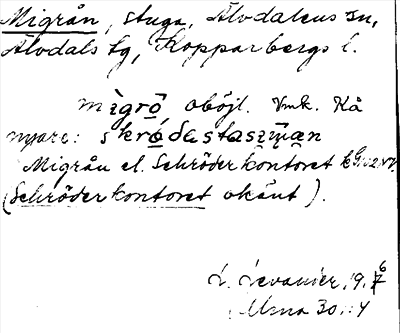 Migrån, stuga, Älvdalens sn,
Älvdals tg, Kopparbergs l.
mìgrō̂ oböjl. Vmk. Kå
nyare: skrǿdastaszman
Migrån el. Schröderkontoret
(Schröderkontoret okänt).
L. Levander, 19
Älvd